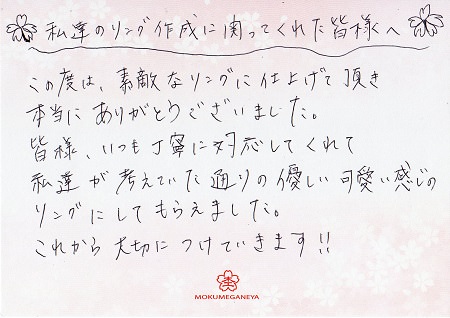 私達のリング作成に関ってくれた皆様へ
この度は、素敵なリングに仕上げて頂き
本当にありがとうございました。
皆様、いつも丁寧に対応してくれて
私達が考えていた通りの優しい可愛い感じの
リングにしてもらえました。
これから大切につけていきます!!
MOKUMEGANEYA